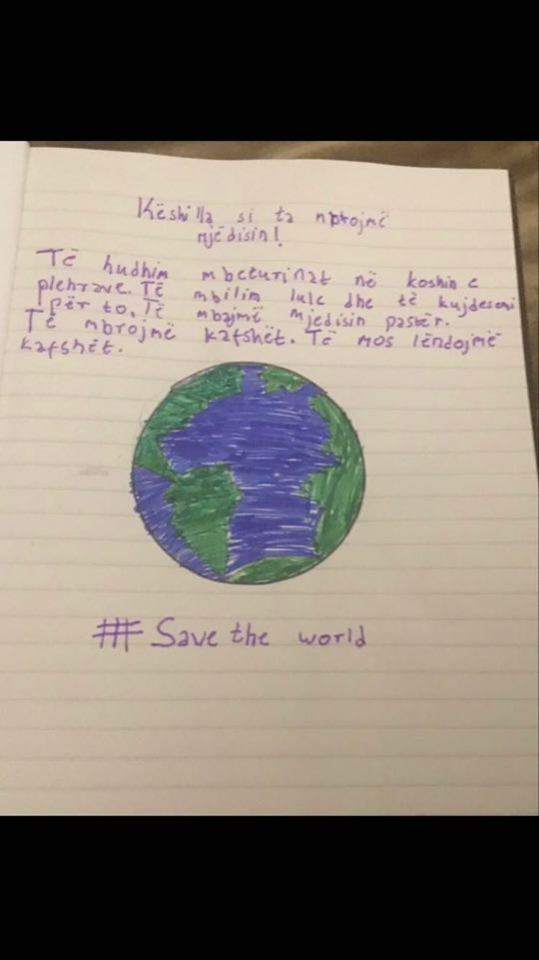 Këshilla si ta mbrojmë
mjedisin!
Të hudhim mbeturinat në koshin e
plehrave. Të mbillim lule dhe të kujdesemi
për to. Të mbajmë mjedisin pastër.
Të mbrojmë kafshët. Të mos lëndojmë
kafshët.
# Save the world